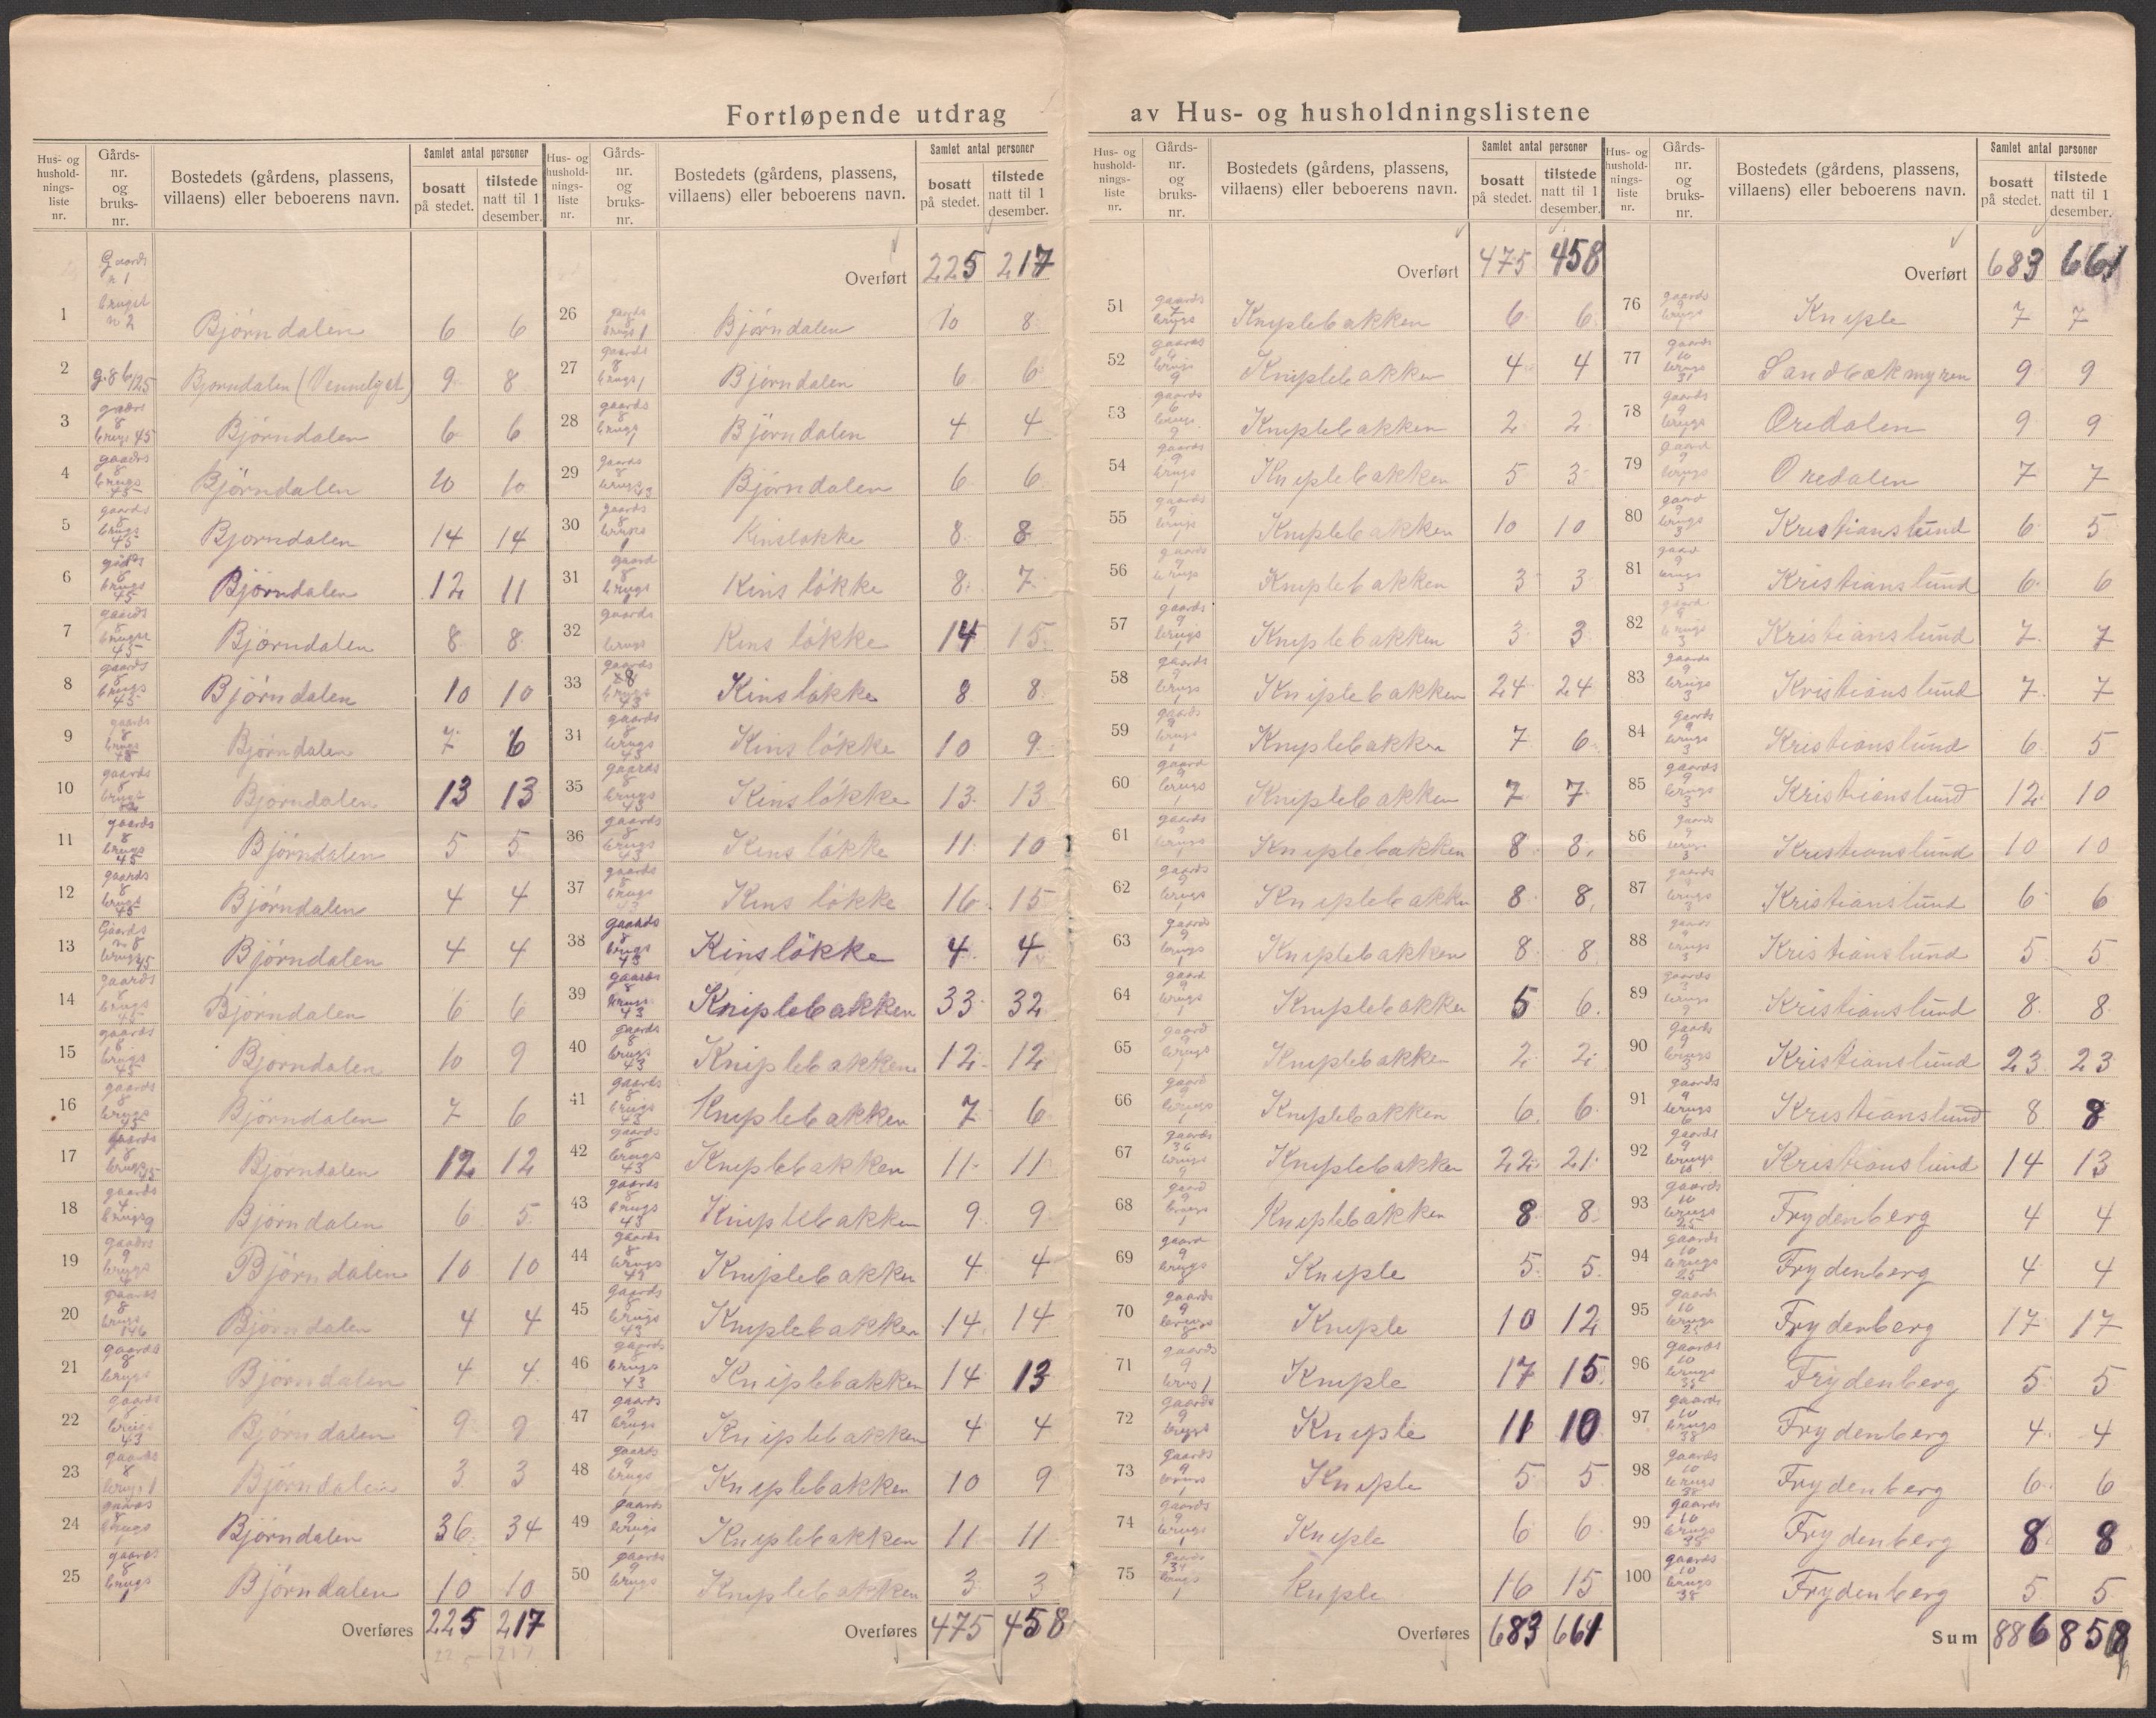 Fortløpende utdrag av Hus- og husholdningslistene
Hus- og husholdnings-liste nr. | Gårds-nr. og bruks-nr. | Bostedets (gårdens, plassens, villaens) eller beboerens navn. | Samlet antal personer: bosatt på stedet. | tilstede natt til 1 desember.
1 | Gaards n 1 bruget n 2 | Bjørndalen | 6 | 6
2 | g. 8 b/125 | Bjørndalen | 9 | 8
3 | gaards 8 brugs 45 | Bjørndalen | 6 | 6
4 | gaards 8 brugs 45 | Bjørndalen | 10 | 10
5 | gaards 8 brugs 45 | Bjørndalen | 14 | 14
6 | gaards 8 brugs 45 | Bjørndalen | 12 | 11
7 | gaards 8 bruget 45 | Bjørndalen | 8 | 8
8 | gaards 8 brugs 45 | Bjørndalen | 10 | 10
9 | gaards 8 brugs | Bjørndalen | 7 | 6
10 | gaards 8 brugs | Bjørndalen | 13 | 13
11 | gaards 8 brugs 45 | Bjørndalen | 5 | 5
12 | gaards 8 brugs 45 | Bjørndalen | 4 | 4
13 | Gaards n 8 brugs 45 | Bjørndalen | 4 | 4
14 | gaards 8 brugs 45 | Bjørndalen | 6 | 6
15 | gaards 8 brugs 45 | Bjørndalen | 10 | 9
16 | gaards 8 brugs 45 | Bjørndalen | 7 | 6
17 | gaards 8 brugs 45 | Bjørndalen | 12 | 12
18 | gaards 4 brugs 9 | Bjørndalen | 6 | 5
19 | gaards 9 brugs 4 | Bjørndalen | 10 | 10
20 | gaards 8 brugs 146 | Bjørndalen | 4 | 4
21 | gaards 8 brugs | Bjørndalen | 4 | 4
22 | gaards 8 brugs 43 | Bjørndalen | 9 | 9
23 | gaards 8 brugs 1 | Bjørndalen | 3 | 3
24 | gaards 8 brugs 1 | Bjørndalen | 36 | 34
25 | gaards 8 brugs 1 | Bjørndalen | 10 | 10
Overføres | 225 | 217
225 217
Hus- og husholdnings-liste nr. | Gårds-nr. og bruks-nr. | Bostedets (gårdens, plassens, villaens) eller beboerens navn. | Samlet antal personer: bosatt på stedet. | tilstede natt til 1 desember.
Overført | 225 | 217
26 | gaards 8 brugs 1 | Bjørndalen | 10 | 8
27 | gaards 8 brugs 1 | Bjørndalen | 6 | 6
28 | gaards 8 brugs 1 | Bjørndalen | 4 | 4
29 | gaards 8 brugs 43 | Bjørndalen | 6 | 6
30 | gaards 8 brugs 1 | Kinsløkke | 8 | 8
31 | gaard 8 brugs 1 | Kinsløkke | 8 | 7
32 | gaards brugs | Kinsløkke | 14 | 15
33 | gaards 8 brugs 43 | Kinsløkke | 8 | 8
34 | gaards 8 brugs 43 | Kinsløkke | 10 | 9
35 | gaards 8 brugs 43 | Kinsløkke | 13 | 13
36 | gaards 8 brugs 43 | Kinsløkke | 11 | 10
37 | gaards 8 brugs 43 | Kinsløkke | 16 | 15
38 | gaards 8 brugs 43 | Kinsløkke | 4 | 4
39 | gaards 8 brugs 43 | Kniplebakken | 33 | 32
40 | gaards 8 brugs 43 | Kniplebakken | 12 | 12
41 | gaards 8 brugs 43 | Kniplebakken | 7 | 6
42 | gaards 8 brugs 43 | Kniplebakken | 11 | 11
43 | gaards 8 brugs 43 | Kniplebakken | 9 | 9
44 | gaards 8 brugs 49 | Kniplebakken | 4 | 4
45 | gaards 8 brugs 43 | Kniplebakken | 14 | 14
46 | gaards 8 brugs 43 | Kniplebakken | 14 | 13
47 | gaards 9 brugs 1 | Kniplebakken | 4 | 4
48 | gaards 9 brugs 1 | Kniplebakken | 10 | 9
49 | gaards 9 brugs 1 | Kniplebakken | 11 | 11
50 | gaards 9 brugs 1 | Kniplebakken | 3 | 3
Overføres | 475 | 458
Hus- og hushold-nings-liste nr. | Gårds-nr. og bruks-nr. | Bostedets (gårdens, plassens, villaens) eller beboerens navn. | Samlet antal personer: bosatt på stedet. | tilstede natt til 1 desember.
Overført | 475 | 458
51 | gaards 7 brugs | Kniplebakken | 6 | 6
52 | gaards 6 brugs 9 | Kniplebakken | 4 | 4
53 | gaards 6 brugs 9 | Kniplebakken | 2 | 2
54 | gaards 9 brugs 1 | Kniplebakken | 5 | 3
55 | gaards 9 brugs 1 | Kniplebakken | 10 | 10
56 | gaards 9 brugs 1 | Kniplebakken | 3 | 3
57 | gaards 9 brugs 1 | Kniplebakken | 3 | 3
58 | gaards 9 brugs 1 | Kniplebakken | 24 | 24
59 | gaards 9 brugs 1 | Kniplebakken | 7 | 6
60 | gaard 9 brugs 1 | Kniplebakken | 7 | 7
61 | gaards 9 brugs 1 | Kniplebakken | 8 | 8
62 | gaards 9 brugs 1 | Kniplebakken | 8 | 8
63 | gaards 9 brugs 1 | Kniplebakken | 8 | 8
64 | gaard 9 brugs 1 | Kniplebakken | 5 | 6
65 | gaard 9 brugs 1 | Kniplebakken | 2 | 2
66 | gaard 9 brugs 1 | Kniplebakken | 6 | 6
67 | gaards 36 brugs 9 | Kniplebakken | 22 | 21
68 | gaard 9 brugs 1 | Kniplebakken | 8 | 8
69 | gaard 9 brugs 8 | Kniple | 5 | 5
70 | gaards 9 brugs 8 | Kniple | 10 | 12
71 | gaards 9 brugs 1 | Kniple | 17 | 15
72 | gaards 9 brugs | Kniple | 11 | 10
73 | gaards 9 brugs 1 | Kniple | 5 | 5
74 | gaards 9 brugs 1 | Kniple | 6 | 6
75 | gaards 34 brugs 1 | Kniple | 16 | 15
Overføres | 683 | 661
Hus- og hushold-nings-liste nr. | Gårds-nr. og bruks-nr. | Bostedets (gårdens, plassens, villaens) eller beboerens navn. | Samlet antal personer: bosatt på stedet. | tilstede natt til 1 desember.
Overført | 683 | 661
76 | gaards 9 brugs 1 | Kniple | 7 | 7
77 | gaards 10 brugs 31 | Sandbækmyren | 9 | 9
78 | gaards 9 brugs 1 | Oredalen | 9 | 9
79 | gaard 9 brugs | Oredalen | 7 | 7
80 | gaard 9 brugs 3 | Kristianslund | 6 | 5
81 | gaard 9 brugs 3 | Kristianslund | 6 | 6
82 | gaard 9 brugs 3 | Kristianslund | 7 | 7
83 | gaards 9 brugs 3 | Kristianslund | 7 | 7
84 | gaards 9 brugs 3 | Kristianslund | 6 | 5
85 | gaards 9 brugs 3 | Kristianslund | 12 | 10
86 | gaards 9 brugs 3 | Kristianslund | 10 | 10
87 | gaards 9 brugs 3 | Kristianslund | 6 | 6
88 | gaards 9 brugs 3 | Kristianslund | 5 | 5
89 | gaards 3 brugs 9 | Kristianslund | 8 | 8
90 | gaards 9 brugs 3 | Kristianslund | 23 | 23
91 | gaards 9 brugs 6 | Kristianslund | 8 | 8
92 | gaards 9 brugs | Kristianslund | 14 | 13
93 | gaards 10 brugs 25 | Frydenberg | 4 | 4
94 | gaards 10 brugs 25 | Frydenberg | 4 | 4
95 | gaards 10 brugs 25 | Frydenberg | 17 | 17
96 | gaards 10 brugs 35 | Frydenberg | 5 | 5
97 | gaards 10 brugs 38 | Frydenberg | 4 | 4
98 | gaards 10 brugs 38 | Frydenberg | 6 | 6
99 | gaards 10 brugs 38 | Frydenberg | 8 | 8
100 | gaards 10 brugs 38 | Frydenberg | 5 | 5
Sum | 886 | 858